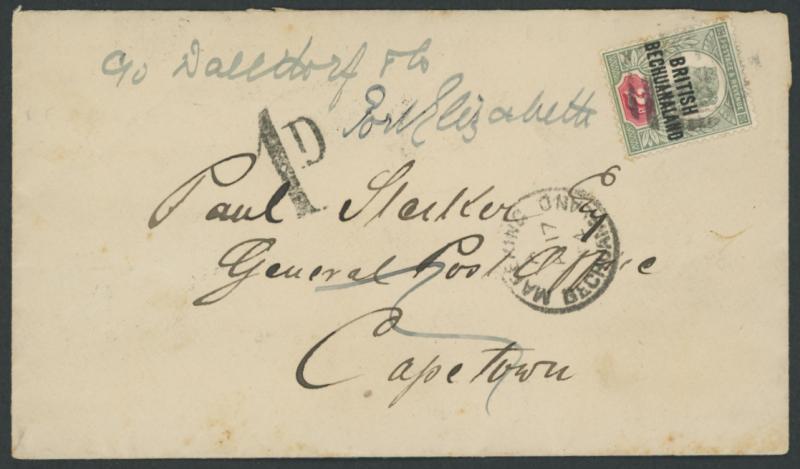 c/o Dalldorf & Co
Port Elizabeth
1D
BRITISH
BECHUANALAND
POSTAGE & REVENUE
Paul Starker Esq
General Post Office
Cape town
MAFEKING
BECHUANALAND
17